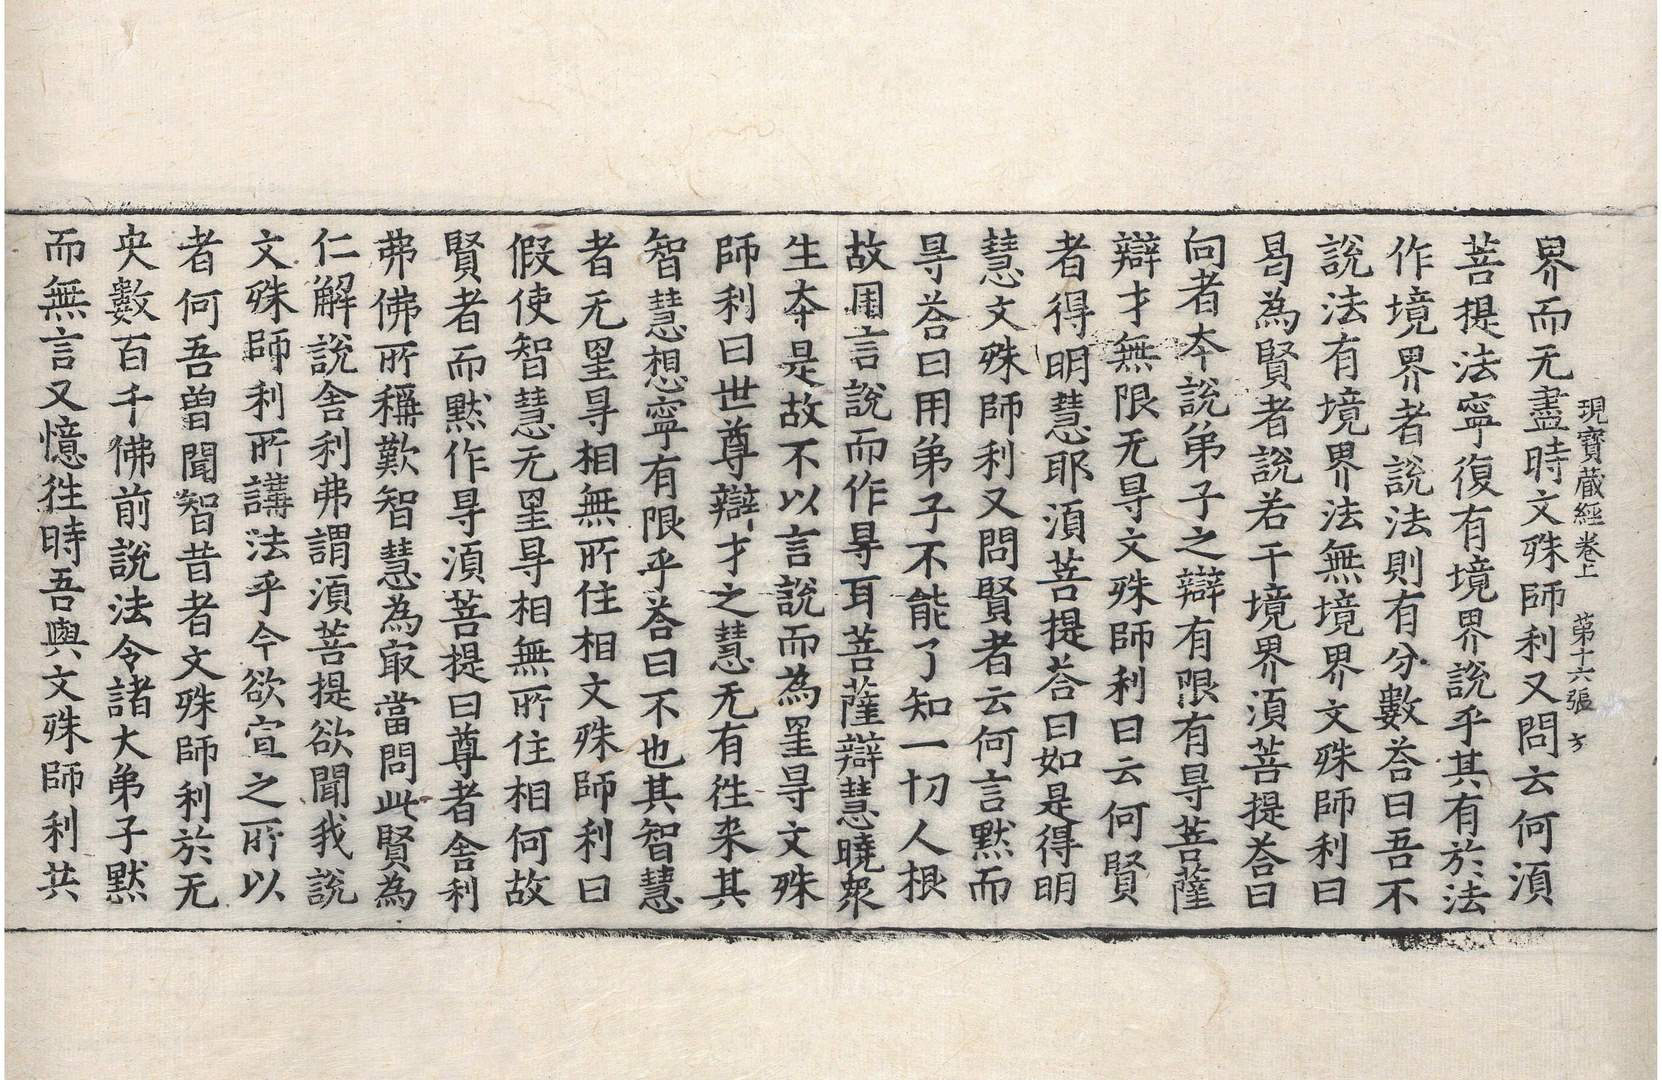 現寶蔵經卷上　第十六張　方
界而无盡時文殊師利又問云何湏
菩提法寧復有境界說乎其有於法
作境界者說法則有分數荅曰吾不
說法有境界法無境界文殊師利曰
曷為賢者說若干境界湏菩提荅曰
向者夲說弟子之辯有限有㝵菩薩
辯才無限无㝵文殊師利曰云何賢
者得明慧耶湏菩提荅曰如是得明
慧文殊師利又問賢者云何言黙而
㝵荅曰用弟子不能了知一切人根
故用言說而作㝵耳菩薩辯慧曉衆
生夲是故不以言說而為罣㝵文殊
師利曰世尊辯才之慧无有徃来其
智慧想寧有限乎荅曰不也其智慧
者无罣㝵相無所住相文殊師利曰
假使智慧无罣㝵相無所住相何故
賢者而黙作㝵湏菩提曰尊者舎利
弗佛所稱歎智慧為㝡當問此賢為
仁解說舎利弗謂湏菩提欲聞我說
文殊師利所講法乎今欲宣之所以
者何吾曽聞智昔者文殊師利於无
央數百千佛前說法令諸大弟子黙
而無言又憶徃時吾與文殊師利共